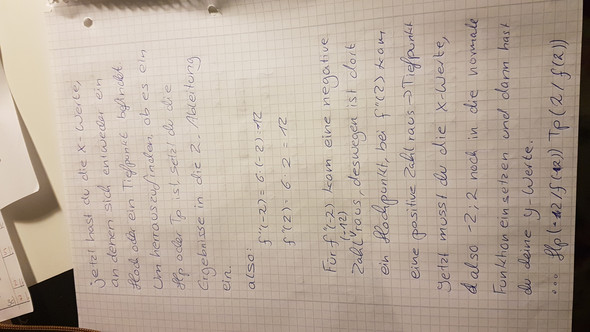 jetzt hast du die x-Werte,
an denen sich entweder ein
Hoch oder ein Tiefpunkt befindet
Um herrauszufinden, ob es ein
Hp oder Tp ist setzt du die
Ergebnisse in die 2. Ableitung
ein
also:
f''(-2) = 6·(-2) = -12
f''(2) = 6·2 = 12
Für f''(-2) kam eine negative
(-12)
Zahl raus, deswegen ist dort
ein Hochpunkt, bei f''(2) kam
eine positive Zahl raus → Tiefpunkt
Jetzt musst du die x-Werte,
also -2; 2 noch in die normale
Funktion einsetzen und dann hast
du deine y-Werte.
... Hp(-2/f(-2)) Tp(2/f(2))